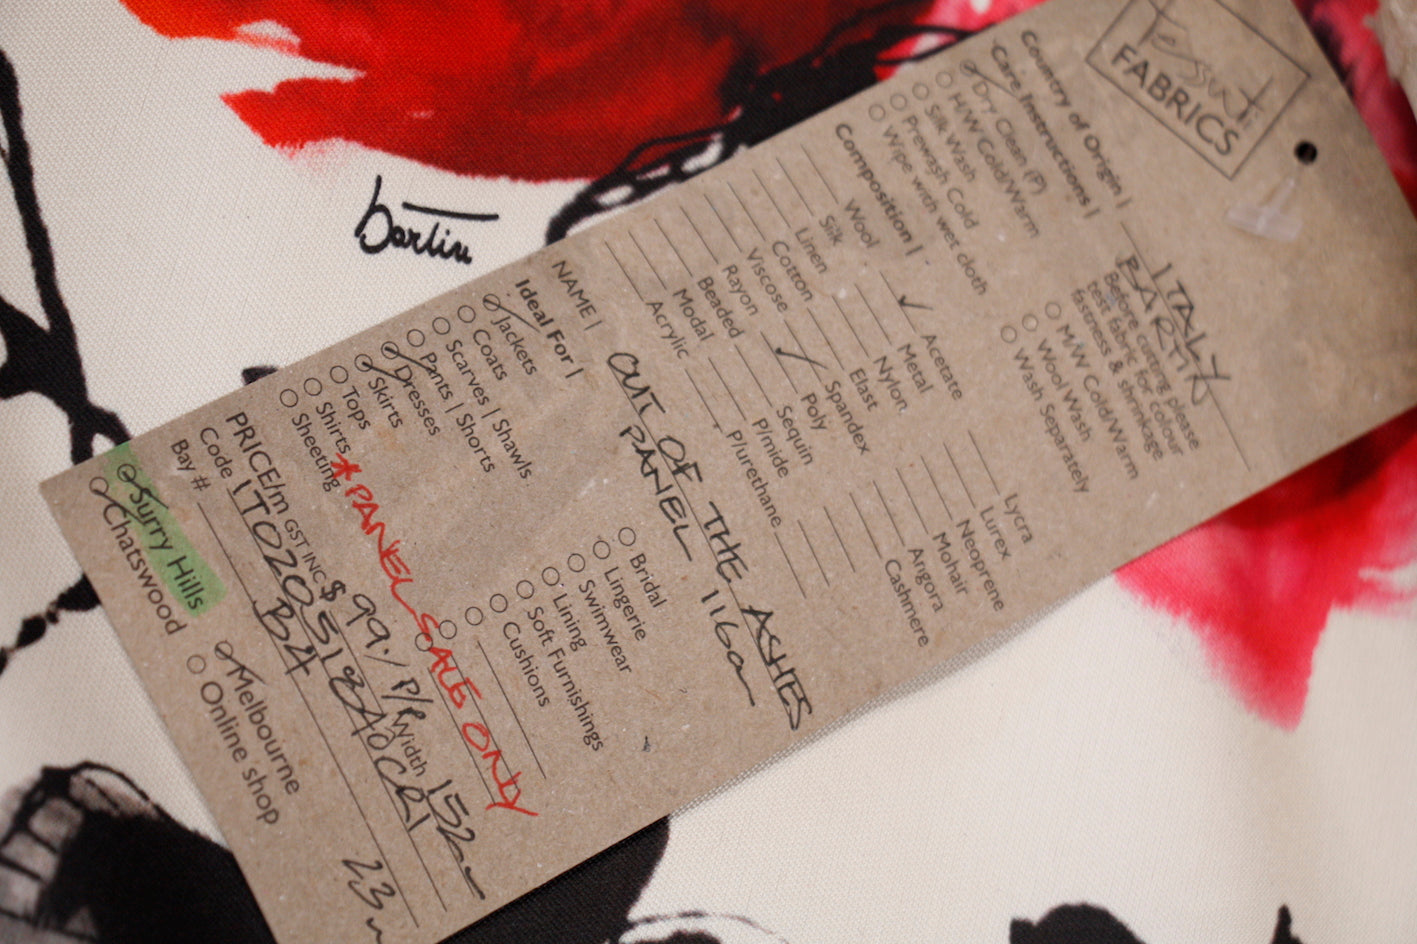 Tessuti
FABRICS
Country of Origin | ITALY
Care Instructions |
Before cutting please
test fabric for colour
fastness & shrinkage
Dry Clean (P)
H/W Cold/Warm
Silk Wash
Prewash Cold
Wipe with wet cloth
M/W Cold/Warm
Wool Wash
Wash Separately
Composition |
Wool
Silk
Linen
Cotton
Viscose
Rayon
Beaded
Modal
Acrylic
✓ Acetate
Metal
Nylon
Elast
✓ Spandex
Poly
Sequin
P/mide
P/urethane
Lycra
Lurex
Neoprene
Mohair
Angora
Cashmere
NAME | OUT OF THE ASHES
PANEL 116cm
Ideal For |
Jackets
Coats
Scarves | Shawls
Pants | Shorts
Dresses
Skirts
Tops
Shirts
Sheeting
Bridal
Lingerie
Swimwear
Lining
Soft Furnishings
Cushions
* PANEL SALE ONLY
PRICE/m GST INC $ 99./P/P Width 152cm
Code
Bay # B24
2.3m
Surry Hills
Chatswood
Melbourne
Online shop